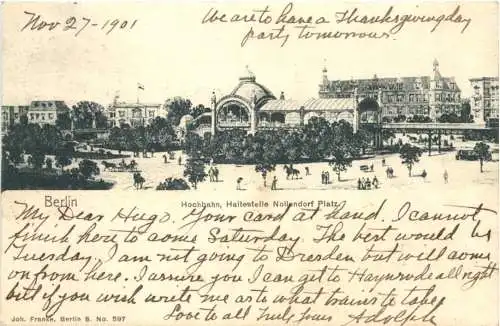 Nov 27 - 1901
We are to have a Thanksgiving day
party tomorrow.
Berlin
Hochbahn, Haltestelle Nollendorf Platz.
My Dear Hugo. Your card at hand. I cannot
finish here to come Saturday. The best would be
Tuesday. I am not going to Dresden but will come
on from here. I assure you I can get to Haynrode all right
but if you wish write me as to what trains to take.
Love to all Truly yours Adolph
Joh. Franke, Berlin S. No. 597